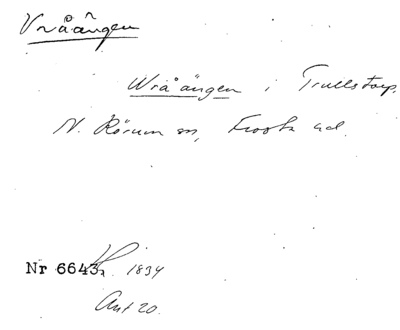 Vråängen
Wråängen i Trullstorp.
N. Rörum sn, Frosta hd.
Nr 6643, 1834
Ant 20.